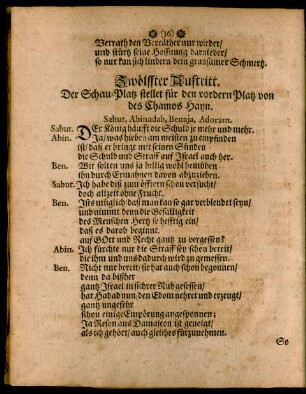 (36)
Verrath den Verräther nur wieder/
und stürtz seine Hoffnung darnieder/
so nur kan sich lindern dein grausamer Schmertz.
Zwölffter Aufftritt.
Der Schau-Platz stellet für den vordern Platz von
des Chamos Hayn.
Sabur, Abinadab, Benaja, Adoram.
Sabur. DEr König häufft die Schuld je mehr und mehr.
Abin. Ja/ was hiebey am meisten zu empfinden
ist/ daß er bringt mit seinen Sünden
die Schuld und Straff auf Israel auch her.
Ben. Wir solten uns ja billig wohl bemühen
ihn durch Ermahnen davon abzuziehen.
Sabur. Ich habe diß zum öfftern schon versucht/
doch allzeit ohne Frucht.
Ben. Ists müglich/ daß man kan so gar verblendet seyn/
und nimmt denn die Gefälligkeit
des Menschen Hertz so hefftig ein/
daß es darob beginnt
auf GOtt und Recht gantz zu vergessen?
Abin. Ich fürchte nur die Straff sey schon bereit/
die ihm und uns dadurch wird zu gemessen.
Ben. Nicht nur bereit/ sie hat auch schon begonnen/
denn da bißher
gantz Israel in sichrer Ruh gesessen/
hat Hadad nun/ den Edom nehret und erzeugt/
gantz ungefehr
schon einige Empörung angesponnen;
Ja Reson aus Damascen ist geneigt/
als ich gehört/ auch gleiches fürzunehmen.
So